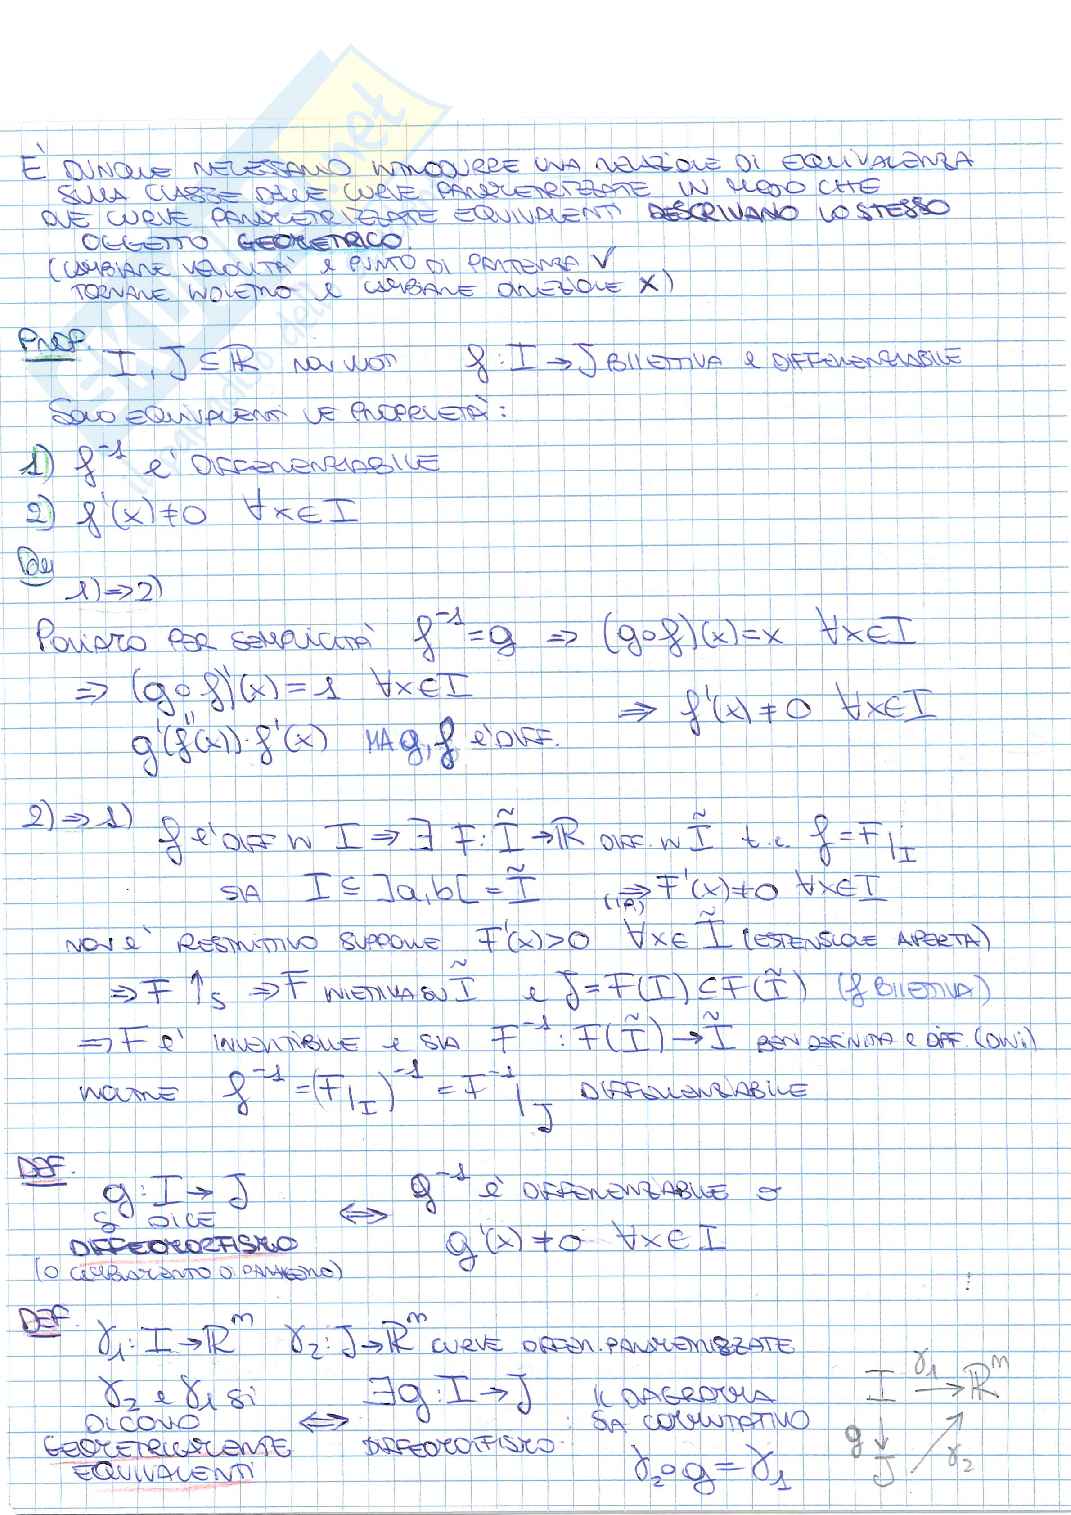 È DUNQUE NECESSARIO INTRODURRE UNA RELAZIONE DI EQUIVALENZA
SULLA CLASSE DELLE CURVE PARAMETRIZZATE IN MODO CHE
DUE CURVE PARAMETRIZZATE EQUIVALENTI DESCRIVANO LO STESSO
OGGETTO GEOMETRICO.
(CAMBIARE VELOCITÀ E PUNTO DI PARTENZA V
TORNARE INDIETRO E CAMBIARE DIREZIONE X)
PROP.
I, J ⊆ ℝ NON VUOTI f: I → J BIIETTIVA E DIFFERENZIABILE
SONO EQUIVALENTI LE PROPRIETÀ:
1) f⁻¹ È DIFFERENZIABILE
2) f'(x) ≠ 0 ∀x ∈ I
Dim
1) ⇒ 2)
PONIAMO PER SEMPLICITÀ f⁻¹ = g ⇒ (g∘f)(x) = x ∀x ∈ I
⇒ (g∘f)'(x) = 1 ∀x ∈ I
g'(f(x))·f'(x) MA g, f È DIFF. ⇒ f'(x) ≠ 0 ∀x ∈ I
2) ⇒ 1) f È DIFF IN I ⇒ ∃ F: Ĩ → ℝ DIFF. IN Ĩ t.c. f = F|I
SIA I ⊆ ]a,b[ = Ĩ ⇒ (IP.) F'(x) ≠ 0 ∀x ∈ I
NON È RESTRITTIVO SUPPORRE F'(x) > 0 ∀x ∈ Ĩ (ESTENSIONE APERTA)
⇒ F ↑S ⇒ F INIETTIVA SU Ĩ e J = F(I) ⊆ F(Ĩ) (f BIIETTIVA)
⇒ F È INVERTIBILE E SIA F⁻¹: F(Ĩ) → Ĩ BEN DEFINITA E DIFF. (DINI)
INOLTRE f⁻¹ = (F|I)⁻¹ = F⁻¹|J DIFFERENZIABILE
DEF.
g: I → J
SI DICE
DIFFEOMORFISMO
(O CAMBIAMENTO DI PARAMETRO)
⟺ g⁻¹ È DIFFERENZIABILE O
g'(x) ≠ 0 ∀x ∈ I
DEF.
γ₁: I → ℝⁿ γ₂: J → ℝⁿ CURVE DIFFER. PARAMETRIZZATE
γ₂ e γ₁ SI
DICONO
GEOMETRICAMENTE
EQUIVALENTI
⟺ ∃ g: I → J
DIFFEOMORFISMO:
IL DIAGRAMMA
SIA COMMUTATIVO
γ₂∘g = γ₁
I γ₁ → ℝⁿ
g ↓ ↗ γ₂
J